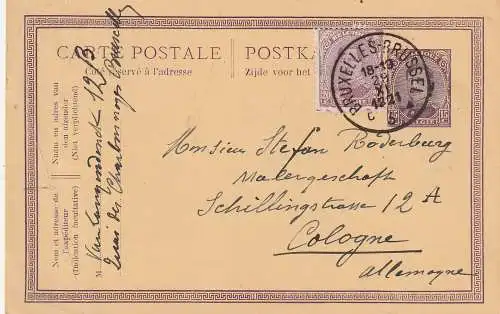 CARTE POSTALE POSTKA
Côté réservé à l'adresse Zijde voor het
BRUXELLES-BRUSSEL
18-19
XI
1921
C
15
Monsieur Stefan Roderburg
Malergeschäft
Schillingstrasse 12 A
Cologne
Allemagne
Nom et adresse de
l'expéditeur
(Indication facultative)
Naam en adres van
den afzender
(Niet verplichtend)
M
Van Langendonck 12 B
Quai des Charbonnages Bruxelles